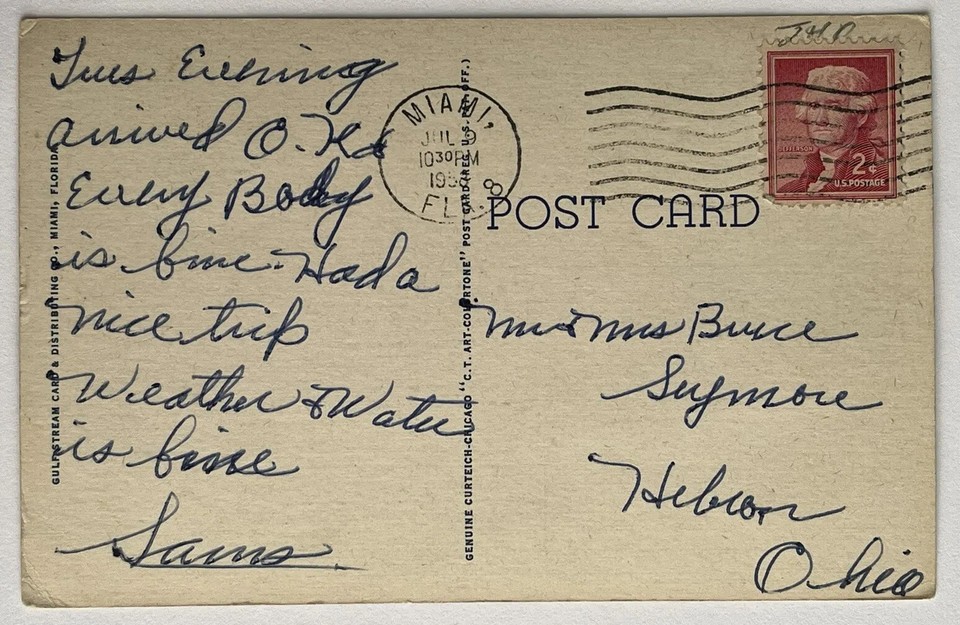 Tues Evening
arrived O. Kd
Every Body
is fine. Had a
nice trip
Weather & Water
is fine
Sams
GULFSTREAM CARD & DISTRIBUTING CO., MIAMI, FLORIDA
GENUINE CURTEICH-CHICAGO "C.T. ART-COLORTONE" POST CARD (REG. U.S. PAT. OFF.)
MIAMI,
JUL
10 30 PM
195 8
FLA
JEFFERSON
2¢
U.S. POSTAGE
POST CARD
Mr & Mrs Bruce
Seymore
Hebron
Ohio